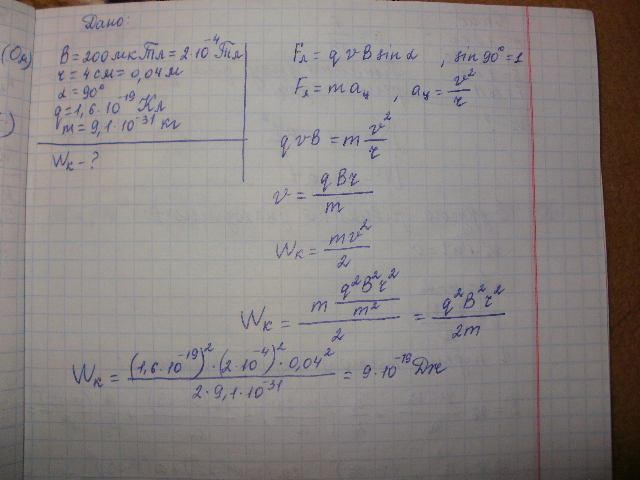 Дано:
B = 200 мкТл = 2·10⁻⁴ Тл
r = 4 см = 0,04 м
α = 90°
q = 1,6·10⁻¹⁹ Кл
m = 9,1·10⁻³¹ кг
Wк - ?
Fл = q v B sin α , sin 90° = 1
Fл = m aц , aц = v²/r
q v B = m v²/r
v = qBr/m
Wк = mv²/2
Wк = (m q²B²r²/m²)/2 = q²B²r²/2m
Wк = (1,6·10⁻¹⁹)²·(2·10⁻⁴)²·0,04²/2·9,1·10⁻³¹ = 9·10⁻¹⁹ Дж